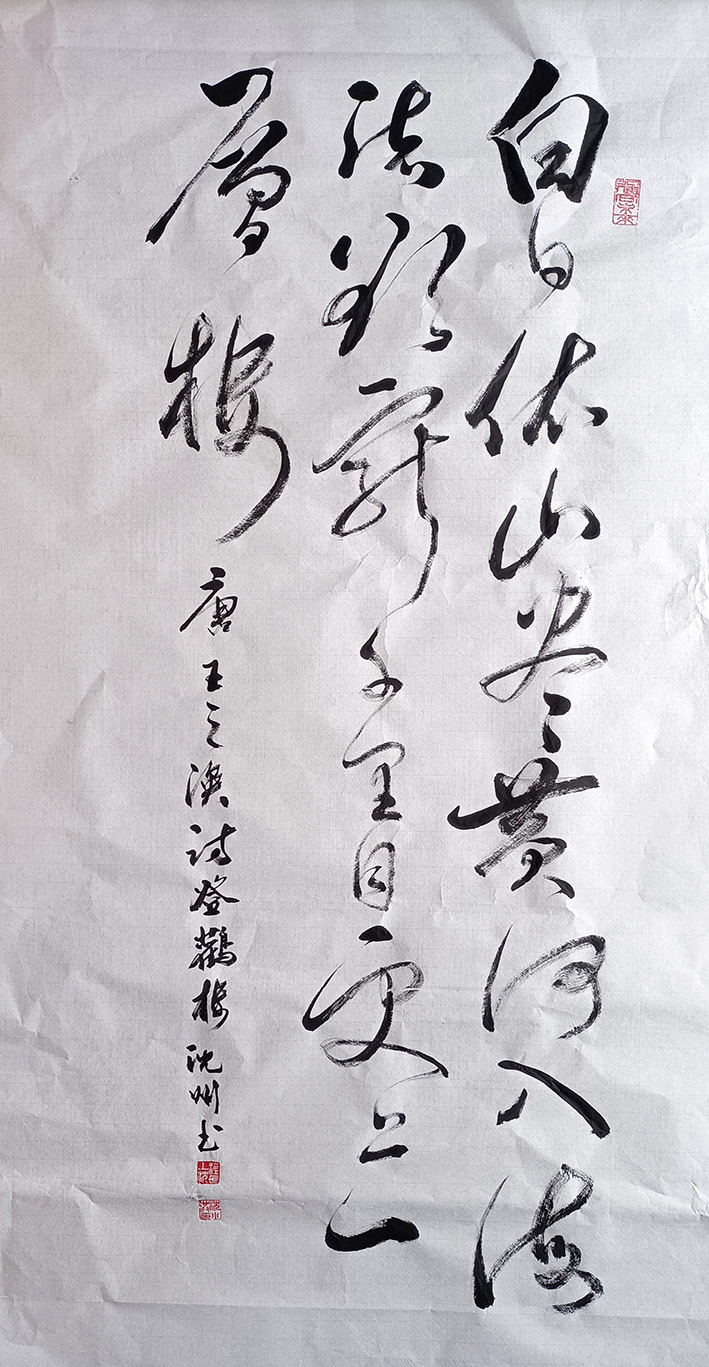 白日依山尽黄河入海
流欲穷千里目更上一
層楼
唐王之涣诗登鸛楼 沈州书